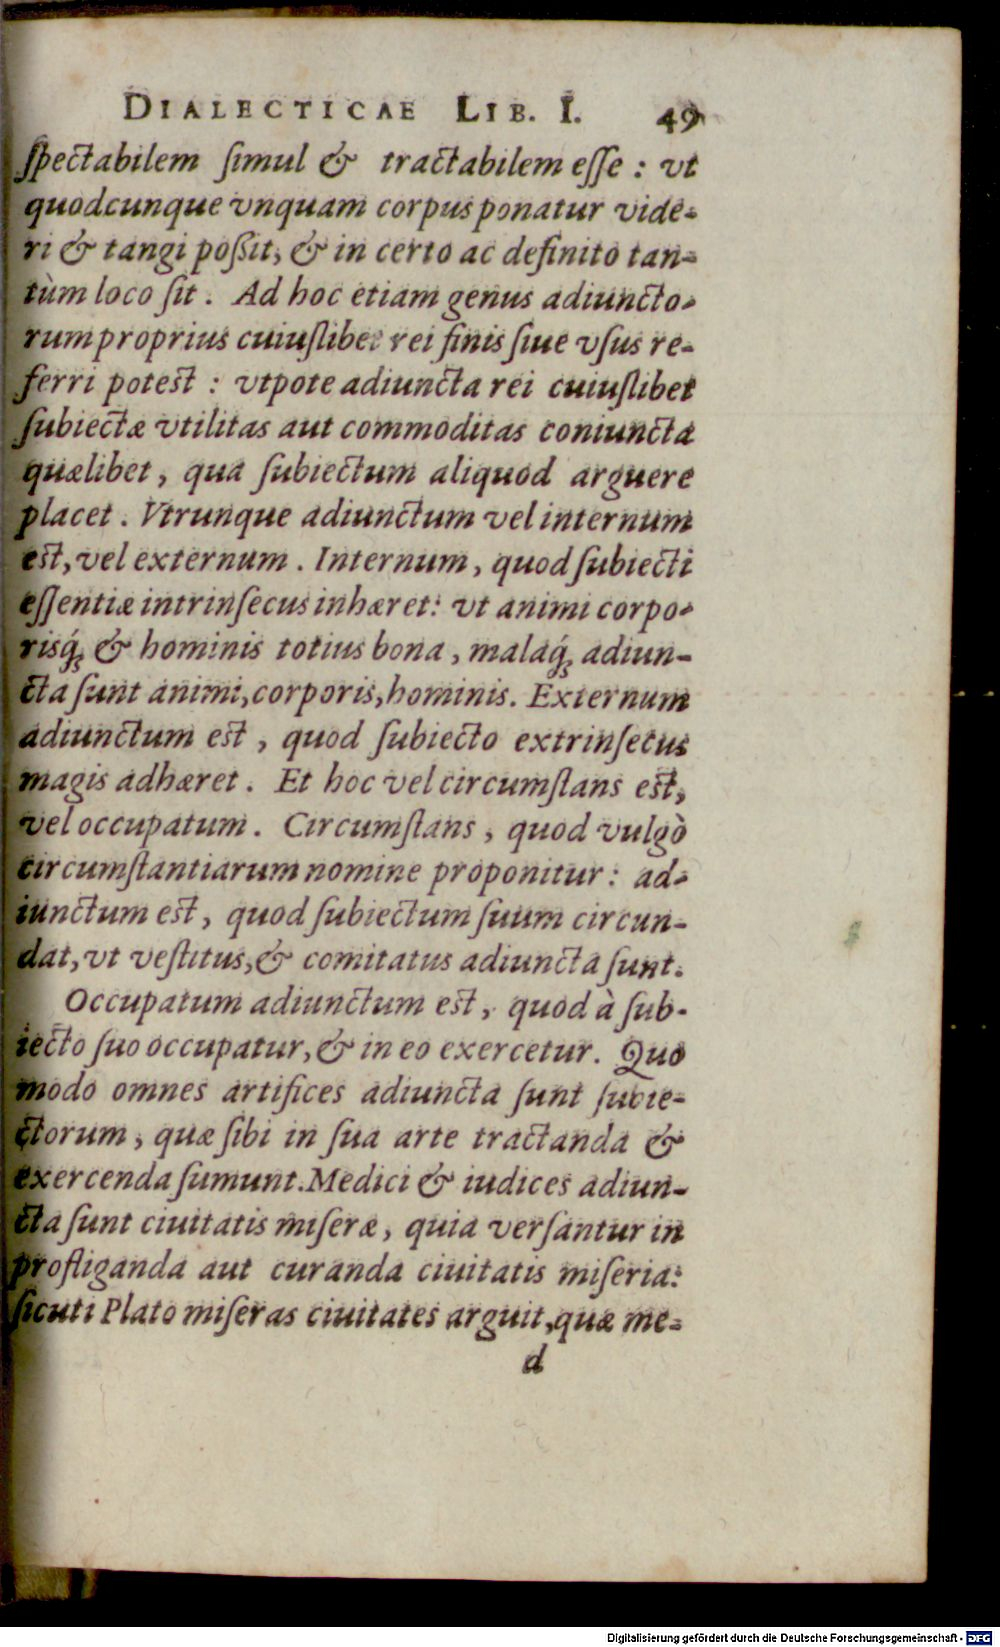 DIALECTICAE LIB. I. 49
ſpectabilem ſimul & tractabilem eſſe : vt
quodcunque vnquam corpus ponatur vide-
ri & tangi poßit, & in certo ac definito tan-
tùm loco ſit . Ad hoc etiam genus adiuncto-
rum proprius cuiuſlibet rei finis ſiue vſus re-
ferri potest : vtpote adiuncta rei cuiuſlibet
ſubiectæ vtilitas aut commoditas coniuncta
quælibet , qua ſubiectum aliquod arguere
placet . Vtrunque adiunctum vel internum
est, vel externum . Internum , quod ſubiecti
eſſentiæ intrinſecus inhæret: vt animi corpo-
risq́; & hominis totius bona , malaq́; adiun-
cta ſunt animi, corporis, hominis. Externum
adiunctum est , quod ſubiecto extrinſecus
magis adhæret . Et hoc vel circumſtans est,
vel occupatum . Circumſtans , quod vulgò
circumſtantiarum nomine proponitur : ad-
iunctum est , quod ſubiectum ſuum circun-
dat, vt veſtitus, & comitatus adiuncta ſunt.
Occupatum adiunctum est , quod à ſub-
iecto ſuo occupatur, & in eo exercetur. Quo
modo omnes artifices adiuncta ſunt ſubie-
ctorum , quæ ſibi in ſua arte tractanda &
exercenda ſumunt. Medici & iudices adiun-
cta ſunt ciuitatis miſeræ , quia verſantur in
profliganda aut curanda ciuitatis miſeria:
ſicuti Plato miſeras ciuitates arguit, quæ me-
d
Digitalisierung gefördert durch die Deutsche Forschungsgemeinschaft - DFG